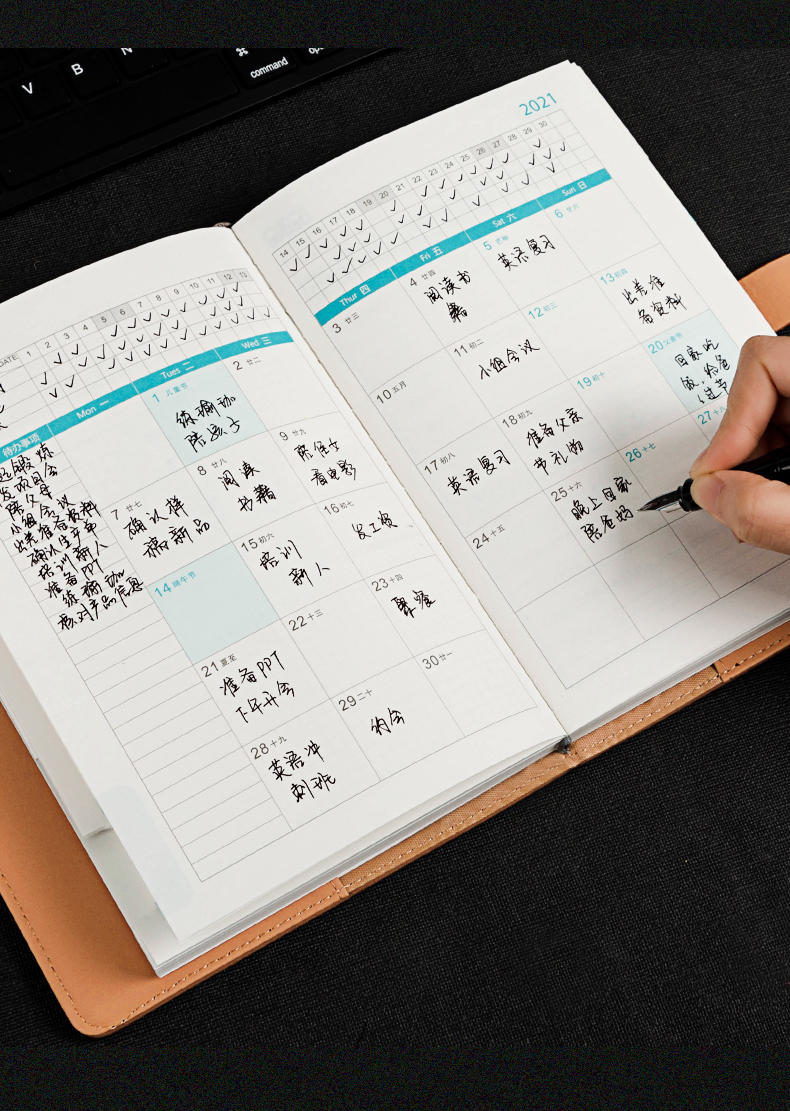 V B N ⌘
command
2021
DATE 1 2 3 4 5 6 7 8 9 10 11 12 13
14 15 16 17 18 19 20 21 22 23 24 25 26 27 28 29 30
待办事项 Mon 一 Tues 二 Wed 三
Thur 四 Fri 五 Sat 六 Sun 日
陪父母
小组会议
出差准备资料
确认生产单
培训新人
准备PPT
练瑜伽
核对产品信息
1 儿童节
练瑜伽
陪孩子
2 廿二
3 廿三
4 廿四
阅读书
籍
5 芒种
英语复习
6 廿六
7 廿七
确认样
稿新品
8 廿八
阅读
书籍
9 廿九
陪侄女
看电影
10 五月
11 初二
小组会议
12 初三
13 初四
出差准
备资料
14 端午节
15 初六
培训
新人
16 初七
发工资
17 初八
英语复习
18 初九
准备父亲
节礼物
19 初十
20 父亲节
回家吃
饭,给爸
过节
21 夏至
准备PPT
下午开会
22 十三
23 十四
聚餐
24 十五
25 十六
晚上回家
陪爸妈
26 十七
27 十八
28 十九
英语冲
刺班
29 二十
约会
30 廿一